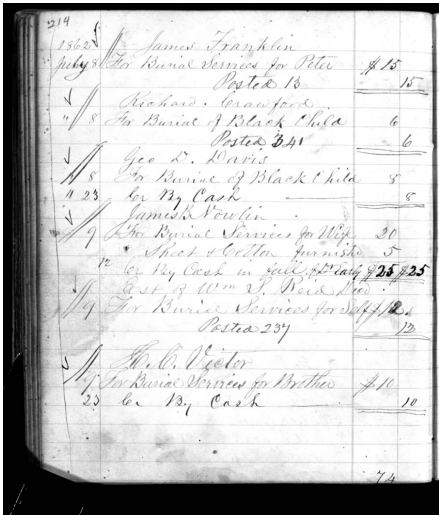 214
1862 James Franklin
July 8 For Burial Services for Peter $15
Posted 13 15
Richard. Crawford
" 8 For Burial of Black Child 6
Posted 341 6
Geo D. Davis
8 For Burial of Black Child 8
" 23 Cr By Cash 8
James B Nowlin
9 For Burial Services for Wife 20
Sheet & Cotton furnish 5
12 Cr By Cash in full $25 $25
Est of Wm S. Reid Decd
9 For Burial Services for Self $12
Posted 237 12
H. C. Victor
9 For Burial Services for Brother $10
23 Cr By Cash 10
74